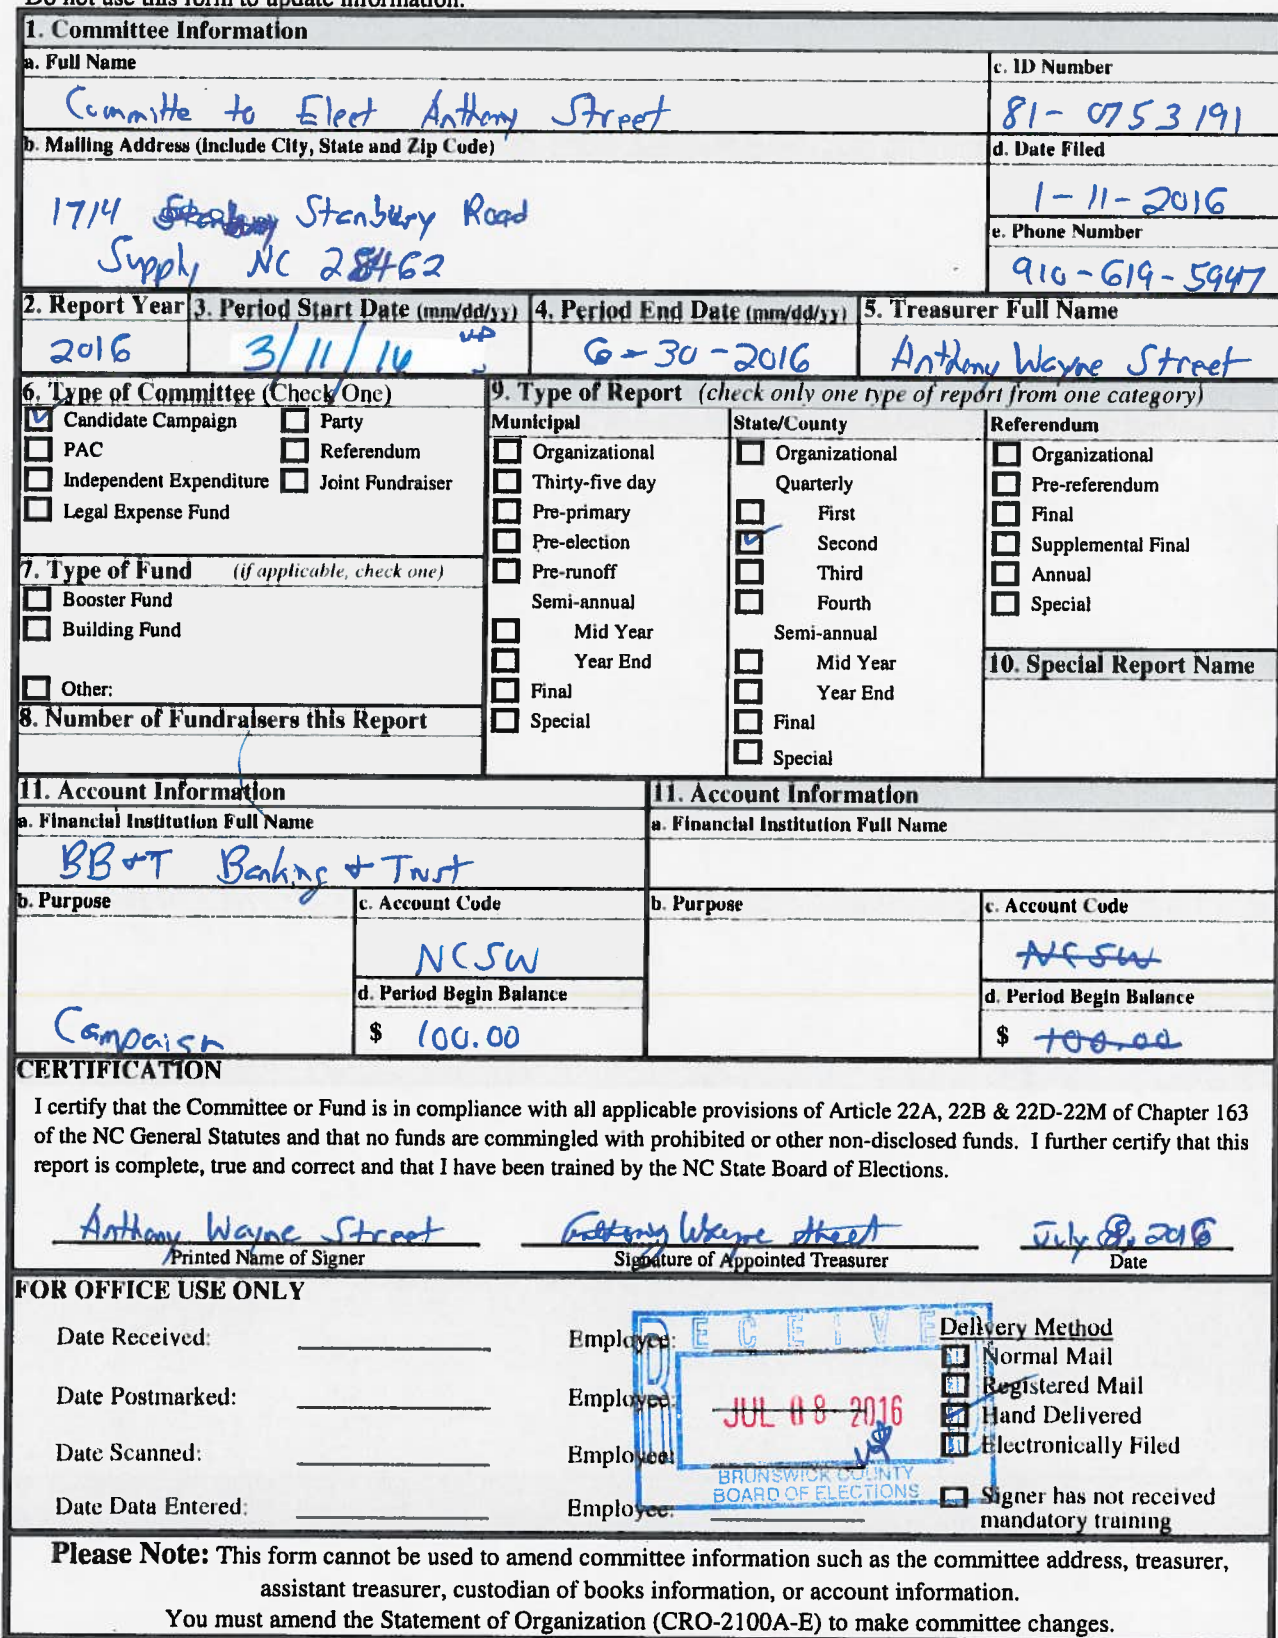 Do not use this form to update information.
1. Committee Information
a. Full Name
Committe to Elect Anthony Street
c. ID Number
81-0753191
b. Mailing Address (include City, State and Zip Code)
1714 Stanbury Stanbury Road
Supply NC 28462
d. Date Filed
1-11-2016
e. Phone Number
910-619-5947
2. Report Year
2016
3. Period Start Date (mm/dd/yy)
3/11/16
4. Period End Date (mm/dd/yy)
6-30-2016
5. Treasurer Full Name
Anthony Wayne Street
6. Type of Committee (Check One)
Candidate Campaign
Party
PAC
Referendum
Independent Expenditure
Joint Fundraiser
Legal Expense Fund
7. Type of Fund (if applicable, check one)
Booster Fund
Building Fund
Other:
8. Number of Fundraisers this Report
9. Type of Report (check only one type of report from one category)
Municipal
Organizational
Thirty-five day
Pre-primary
Pre-election
Pre-runoff
Semi-annual
Mid Year
Year End
Final
Special
State/County
Organizational
Quarterly
First
Second
Third
Fourth
Semi-annual
Mid Year
Year End
Final
Special
Referendum
Organizational
Pre-referendum
Final
Supplemental Final
Annual
Special
10. Special Report Name
11. Account Information
a. Financial Institution Full Name
BB&T Banking & Trust
b. Purpose
Campaign
c. Account Code
NCSW
d. Period Begin Balance
$ 100.00
11. Account Information
a. Financial Institution Full Name
b. Purpose
c. Account Code
NCSW
d. Period Begin Balance
$ 100.00
CERTIFICATION
I certify that the Committee or Fund is in compliance with all applicable provisions of Article 22A, 22B & 22D-22M of Chapter 163
of the NC General Statutes and that no funds are commingled with prohibited or other non-disclosed funds. I further certify that this
report is complete, true and correct and that I have been trained by the NC State Board of Elections.
Anthony Wayne Street
Printed Name of Signer
Anthony Wayne Street
Signature of Appointed Treasurer
July 8, 2016
Date
FOR OFFICE USE ONLY
Date Received:
Employee:
Date Postmarked:
Employee:
Date Scanned:
Employee:
Date Data Entered:
Employee:
RECEIVED
JUL 08 2016
BRUNSWICK COUNTY
BOARD OF ELECTIONS
Delivery Method
Normal Mail
Registered Mail
Hand Delivered
Electronically Filed
Signer has not received
mandatory training
Please Note: This form cannot be used to amend committee information such as the committee address, treasurer,
assistant treasurer, custodian of books information, or account information.
You must amend the Statement of Organization (CRO-2100A-E) to make committee changes.